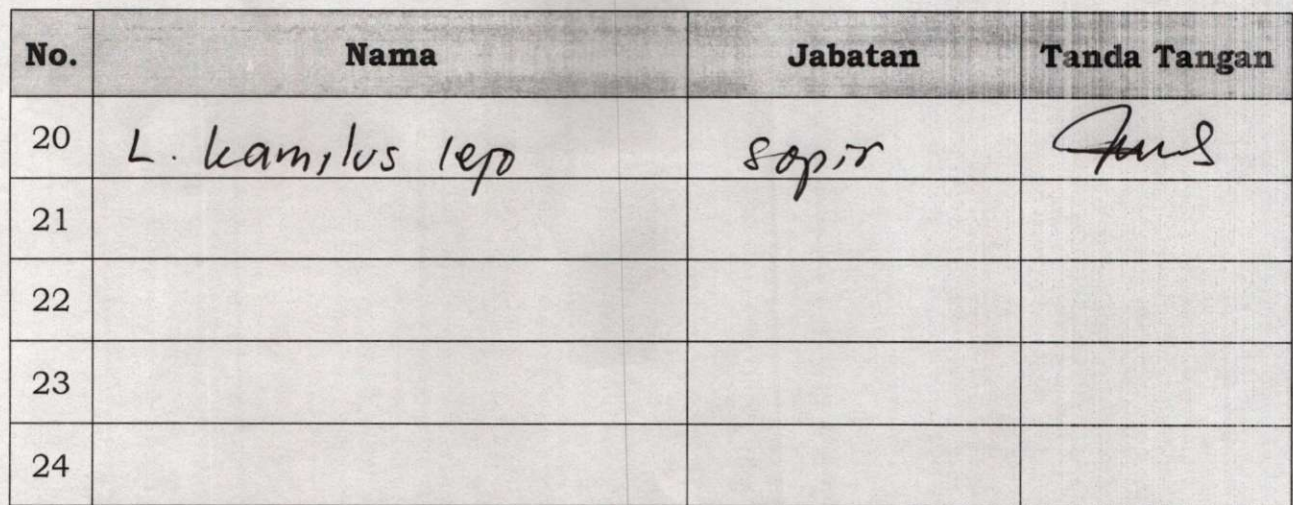 No. Nama Jabatan Tanda Tangan
20 L. kamilus lepo sopir
21
22
23
24